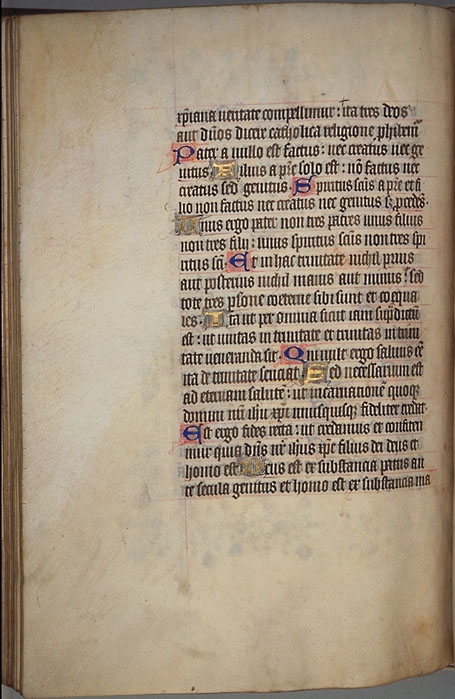 xp̄iana ueritate compellimur: ita tres deos
aut dn̄os dicere catholica religione phibem̄
Pater a nullo est factus: nec creatus nec ge
nitus. Filius a pr̄e solo est: nō factus nec
creatus sed genitus. Spiritus sc̄us a pr̄e et fi
lio non factus nec creatus nec genitus sꝫ pcedēs.
Unus ergo pater non tres patres unus filius
non tres filij: unus spiritus sc̄us non tres spi
ritus sc̄i. Et in hac trinitate nichil prius
aut posterius nichil maius aut minus: sed
tote tres psone coeterne sibi sunt et coequa
les. Ita ut per omnia sicut iam supͣdictū
est: ut unitas in trinitate et trinitas in uni
tate ueneranda sit. Qui uult ergo saluus eē
ita de trinitate senciat. Sed necessarium est
ad eternam salutē: ut incarnationē quoqꝫ
domini nr̄i ihū xp̄i unusquisqꝫ fideliter credat.
Est ergo fides recta: ut credamus et confitea
mur quia dn̄s nr̄ ihūs xp̄c filius dei deus et
homo est. Deus est ex substancia patris an
te secula genitus et homo est ex substancia ma